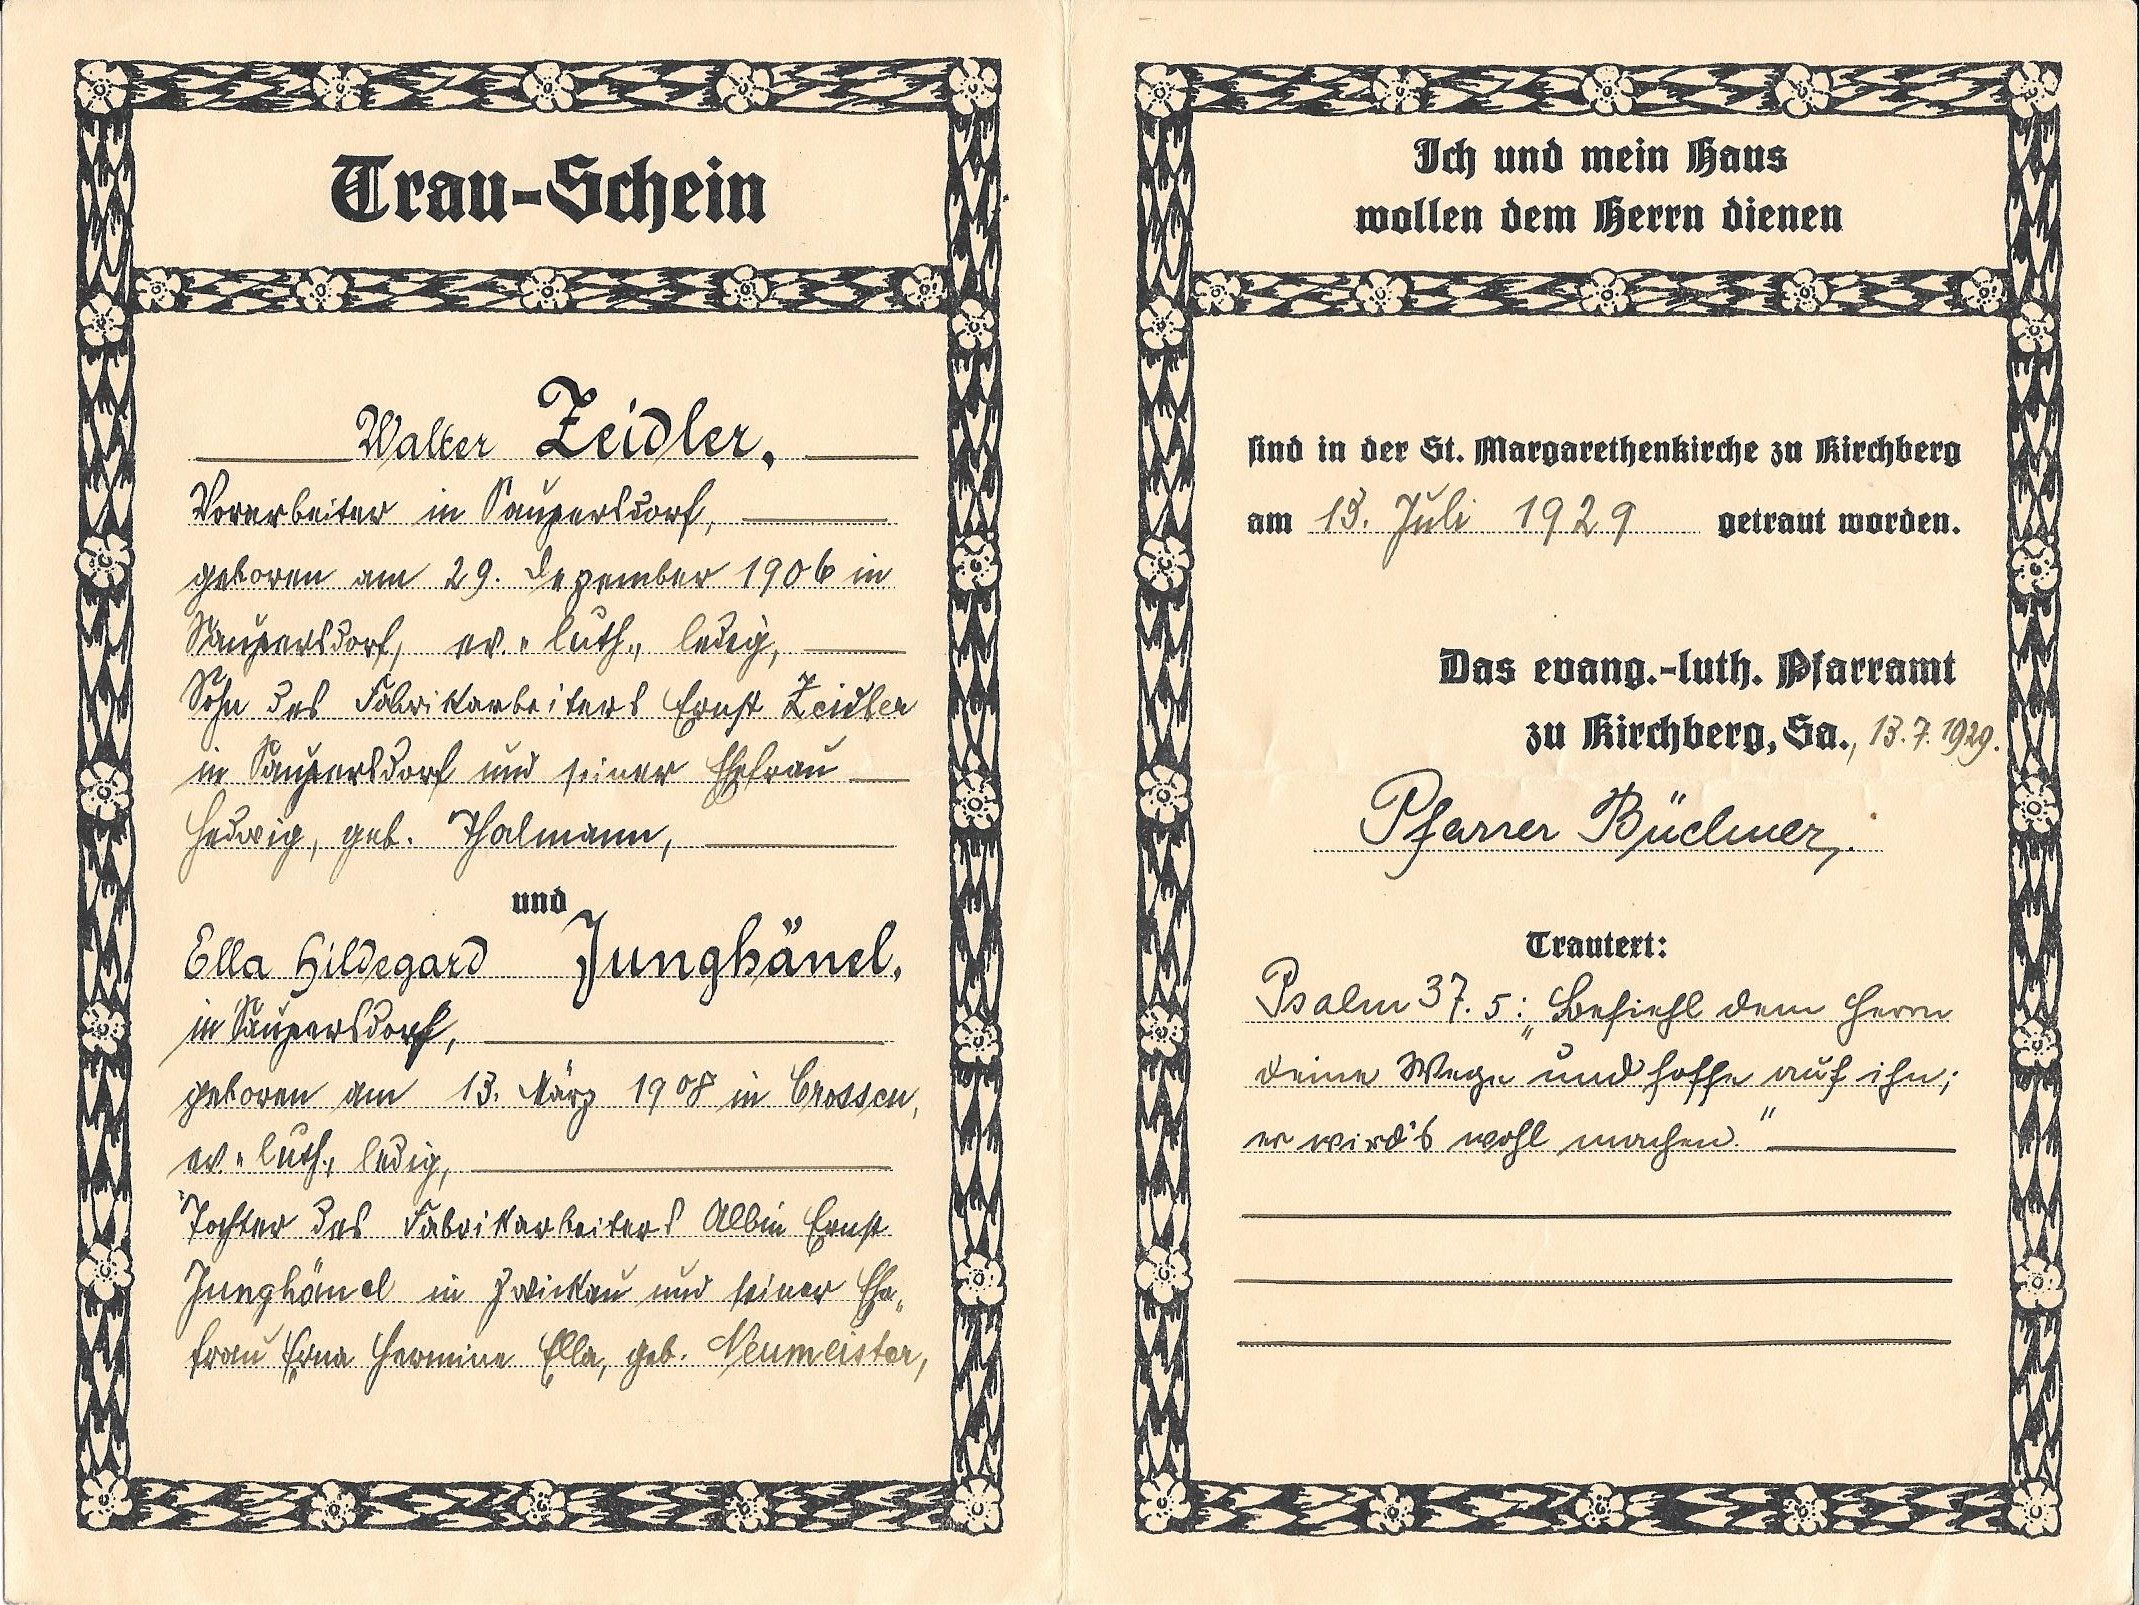 Trau-Schein
Walter Zeidler,
Vorarbeiter in Saupersdorf,
geboren am 29. Dezember 1906 in
Saupersdorf, ev.-luth., ledig,
Sohn des Fabrikarbeiters Ernst Zeidler
in Saupersdorf und seiner Ehefrau
Hedwig, geb. Thalmann,
und
Ella Hildegard Junghänel,
in Saupersdorf,
geboren am 13. März 1908 in Crossen,
ev.-luth., ledig,
Tochter des Fabrikarbeiters Albin Ernst
Junghänel in Zwickau und seiner Ehe-
frau Erna Hermine Ella, geb. Neumeister,
Ich und mein Haus
wollen dem Herrn dienen
sind in der St. Margarethenkirche zu Kirchberg
am 13. Juli 1929 getraut worden.
Das evang.-luth. Pfarramt
zu Kirchberg, Sa., 13.7.1929.
Pfarrer Büchner.
Trautext:
Psalm 37. 5: „Befiehl dem Herrn
deine Wege und hoffe auf ihn;
er wird's wohl machen."